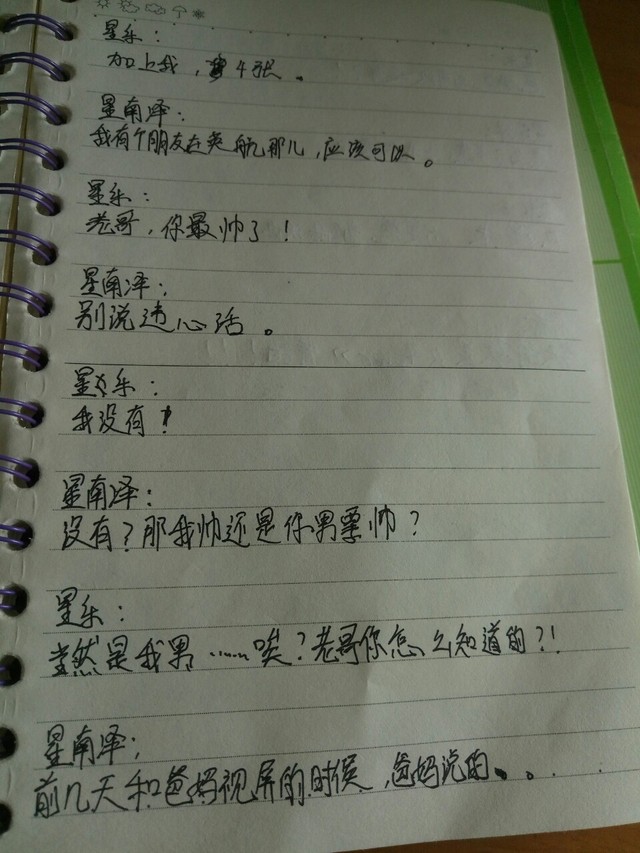 星乐：
加上我，4张。
星南泽：
我有个朋友在英航那儿，应该可以。
星乐：
老哥，你最帅了！
星南泽：
别说违心话。
星乐：
我没有！
星南泽：
没有？那我帅还是你男票帅？
星乐：
当然是我男……唉？老哥你怎么知道的？！
星南泽：
前几天和爸妈视屏的时候，爸妈说的。。.